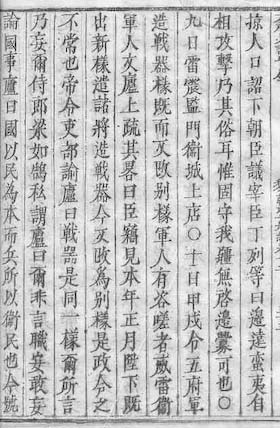 掠人口詔下朝臣議宰臣丁列等曰邊達蠻夷有
相攻擊乃其俗耳惟固守我疆無啓邊釁可也〇
九日雷震監門衛城上店〇十日甲戍令五府軍
造戰器樣既而又改别樣軍人有咨嗟者威雷衛
軍人文廬上疏其畧曰臣竊見本年正月陛下既
出新樣造諸將造戰器令又改爲别樣是政令之
不常也帝令吏部論廬曰戰器是同一樣爾所言
乃妄爾侍郎梁如鵠私謂廬曰爾非言職安敢妄
論國事廬曰國以民為本而兵所以衛民也今號